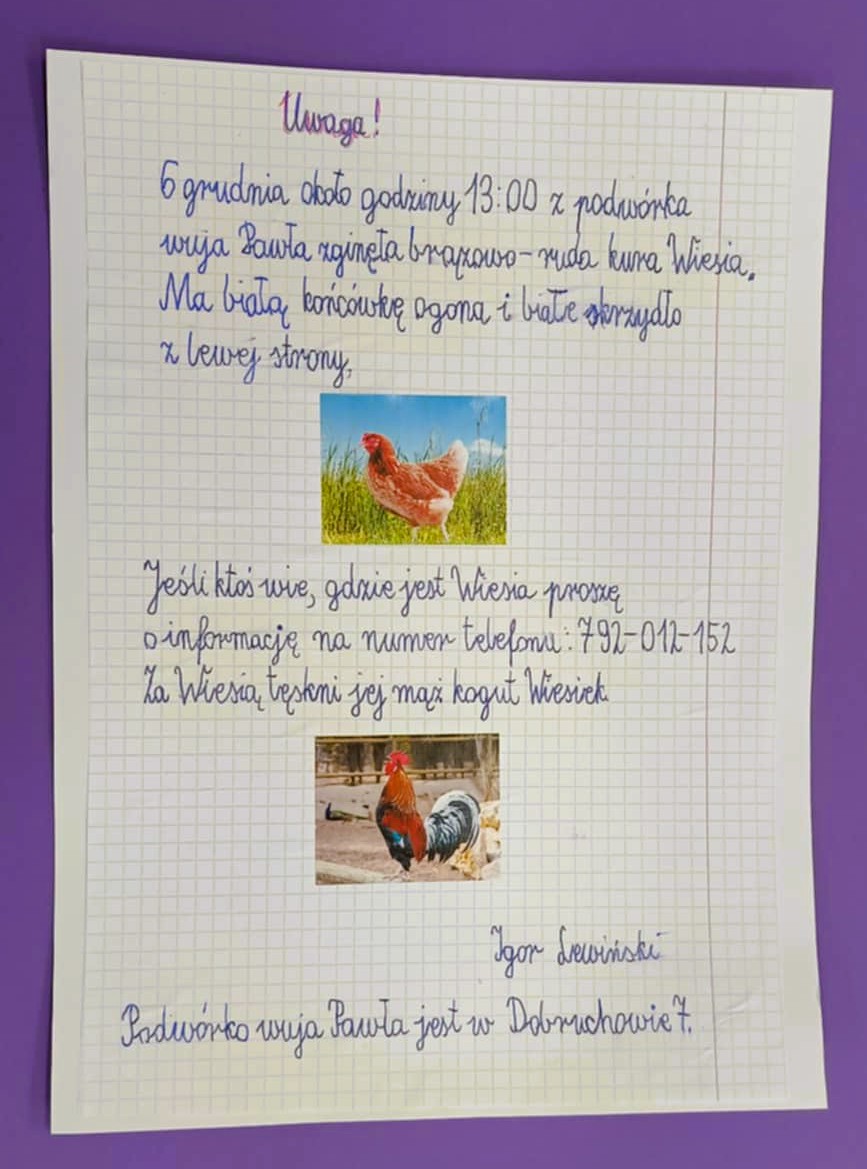 Uwaga!
6 grudnia około godziny 13:00 z podwórka
wuja Pawła zginęła brązowo-ruda kura Wiesia.
Ma białą końcówkę ogona i białe skrzydło
z lewej strony.
Jeśli ktoś wie, gdzie jest Wiesia proszę
o informację na numer telefonu: 792-012-152
Za Wiesią tęskni jej mąż kogut Wiesiek.
Igor Lewiński
Podwórko wuja Pawła jest w Dobruchowie 7.